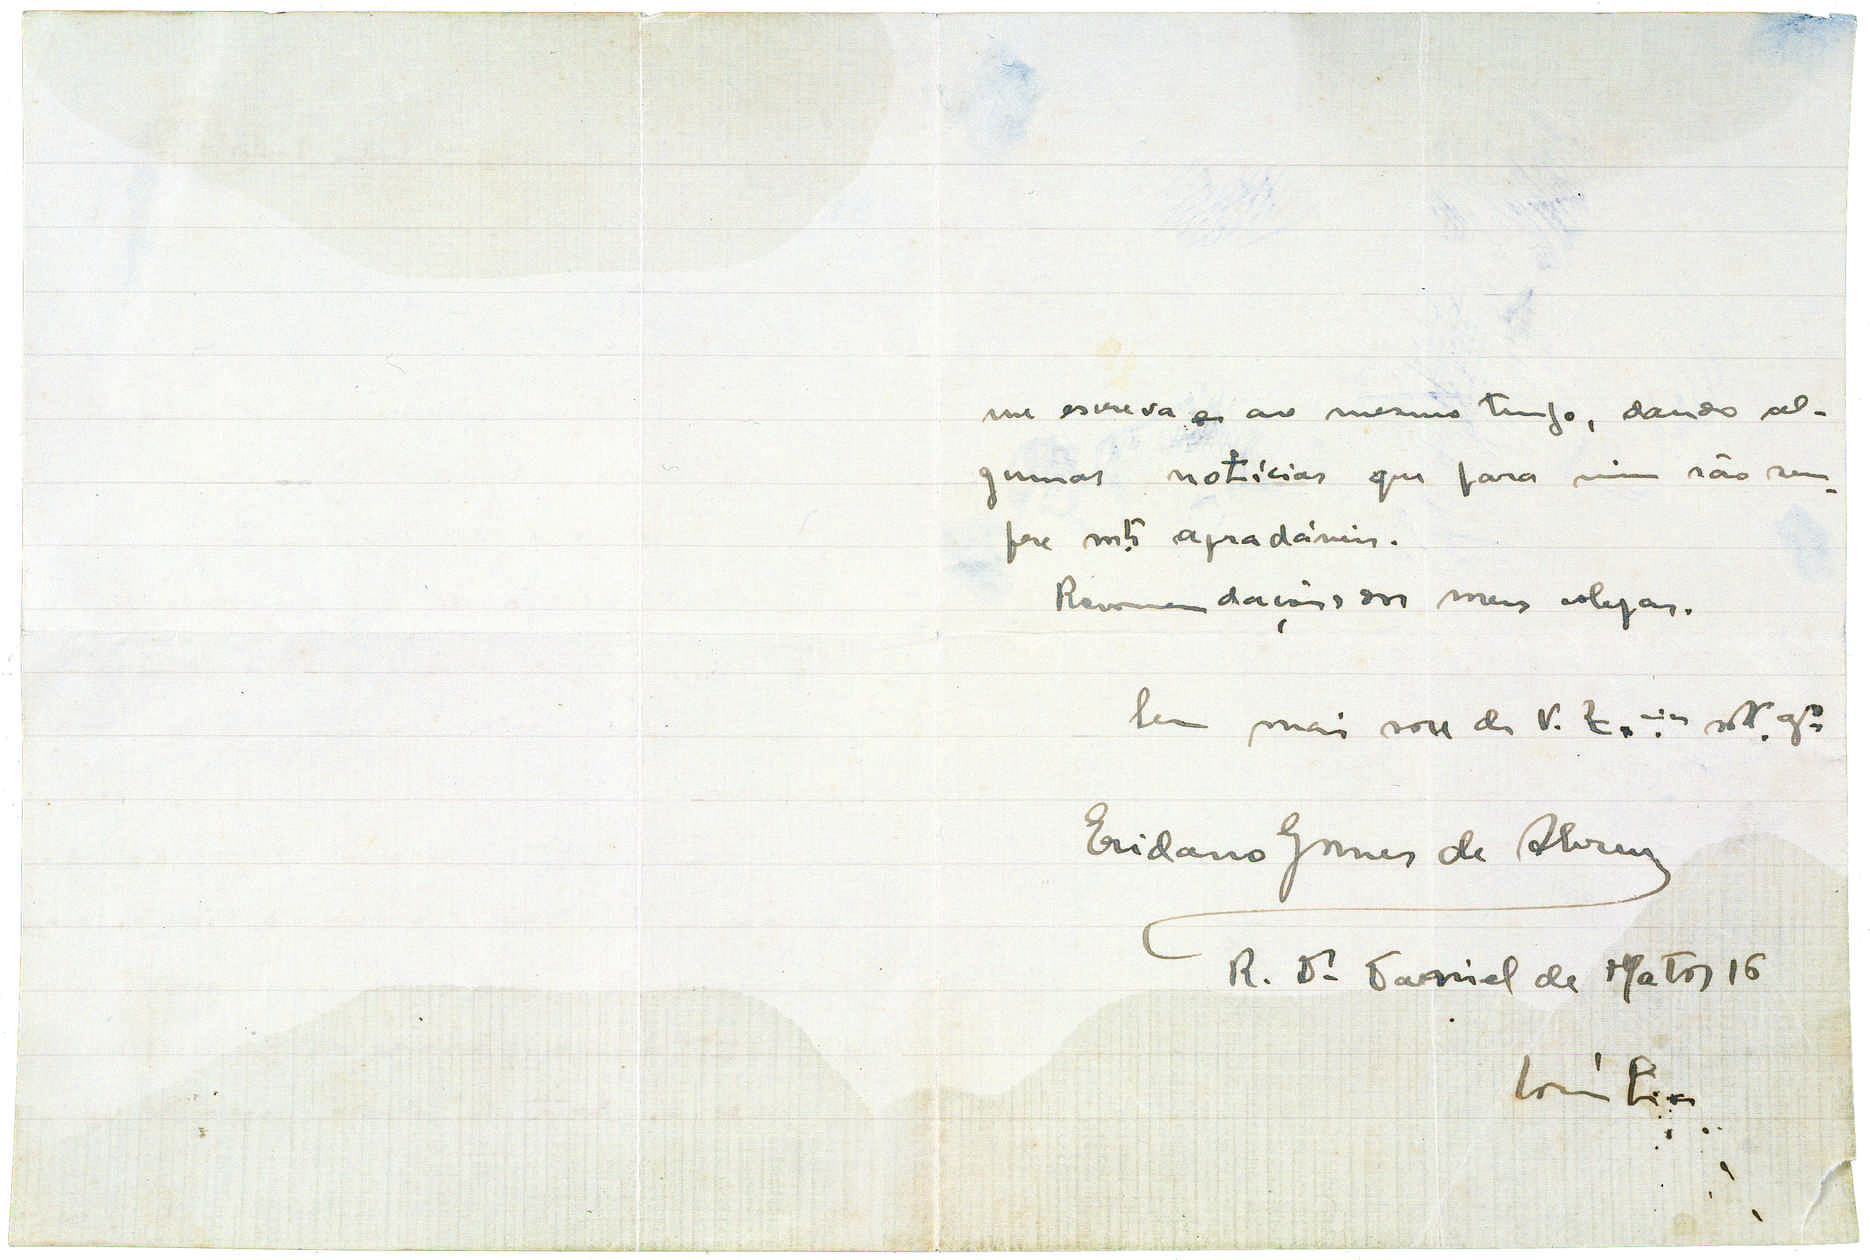 me escreva e ao mesmo tempo, dando al-
gumas notícias que para mim são sem-
pre mtº agradáveis.
Recomendações aos meus colegas.
Sem mais sou de V. Ex.cia
Eridano Gomes de Abreu
R. Dr. Daniel de Matos 16
Coimbra